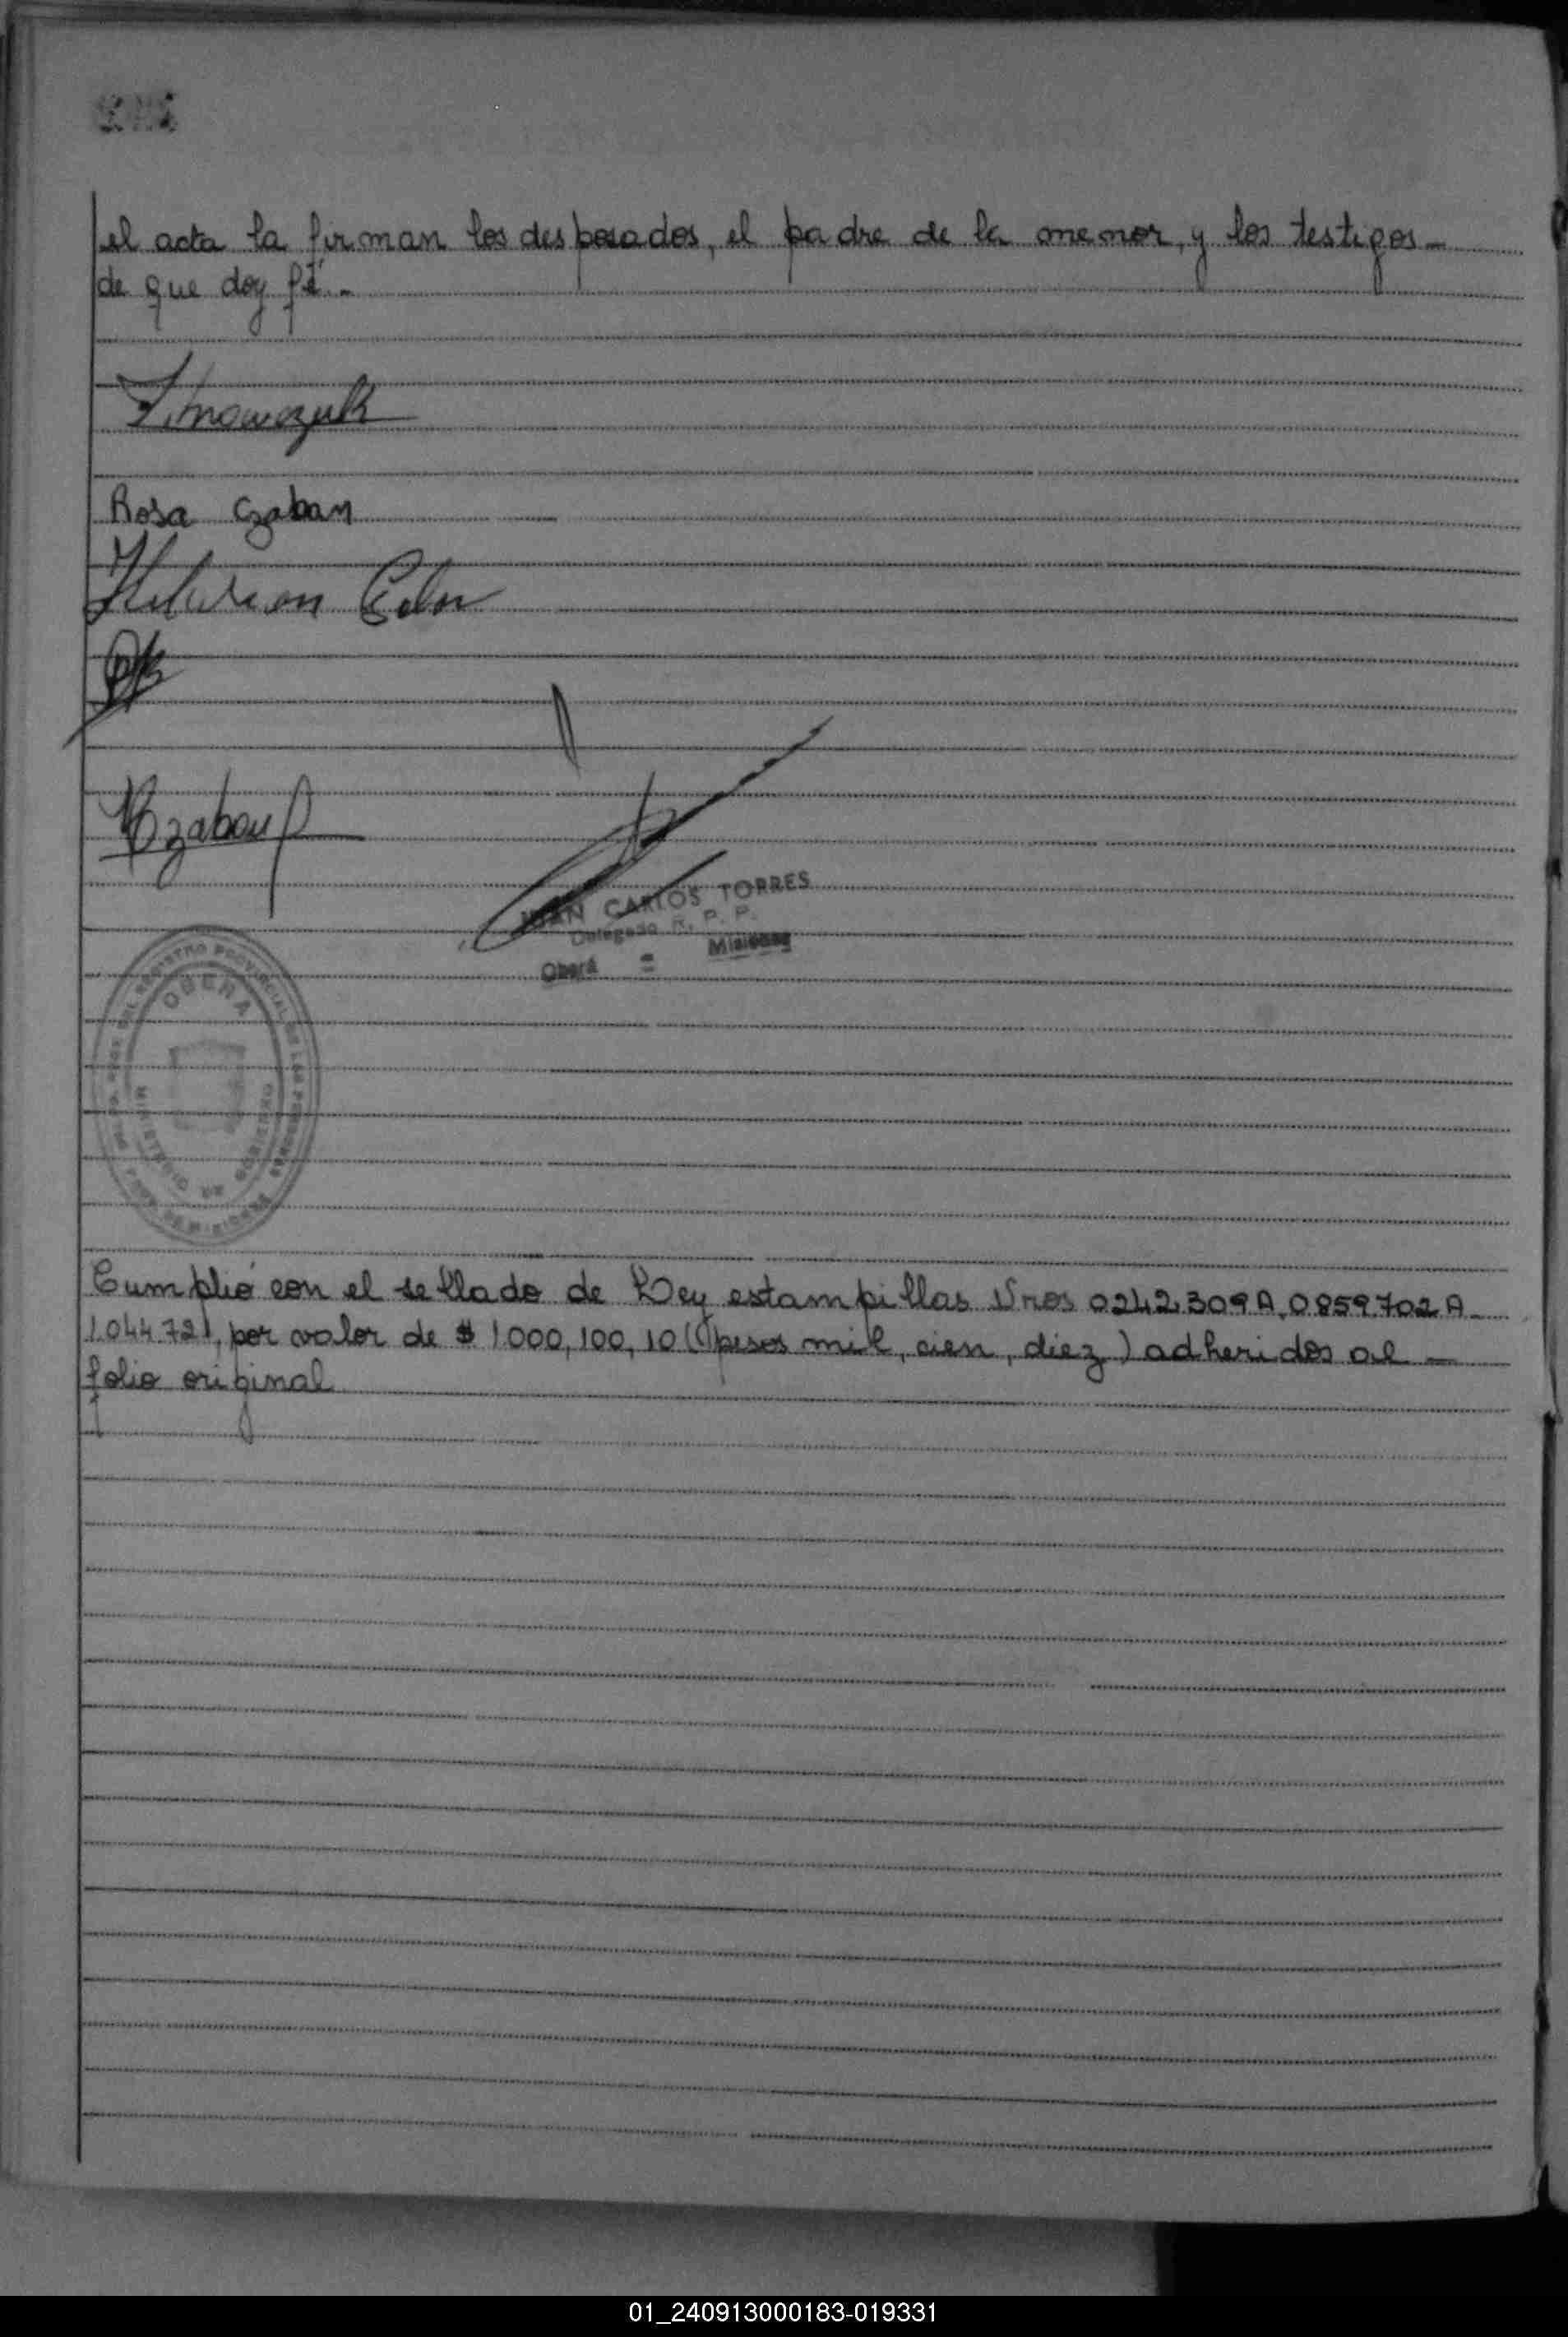 el acta la firman los desposados, el padre de la menor, y los testigos -
de que doy fé. -
Rosa Czaban
Czaban
JUAN CARLOS TORRES
Delegado R. P. P.
Oberá = Misiones
REGISTRO PROVINCIAL DE LAS PERSONAS
OBERA
MINISTERIO DE GOBIERNO
Cumplió con el sellado de Ley estampillas Nros 0242309A, 0859702A -
1044721, por valor de $ 1000, 100, 10 (pesos mil, cien, diez) adheridos al -
folio original
01_240913000183-019331